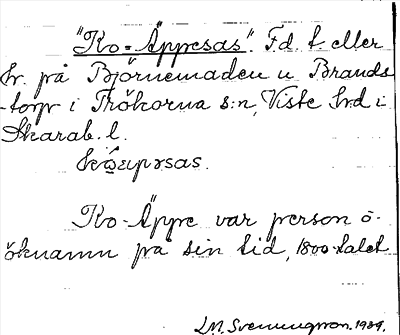 "Ko-Äppesas". Fd. t. eller
hr. på Björnemaden u Brands
-torp i Trökörna s:n, Viste hrd i
Skarab. l.
Ko-Äppe var person ö-
öknamn på sin tid, 1800-talet
L.M. Svenungsson. 1984.